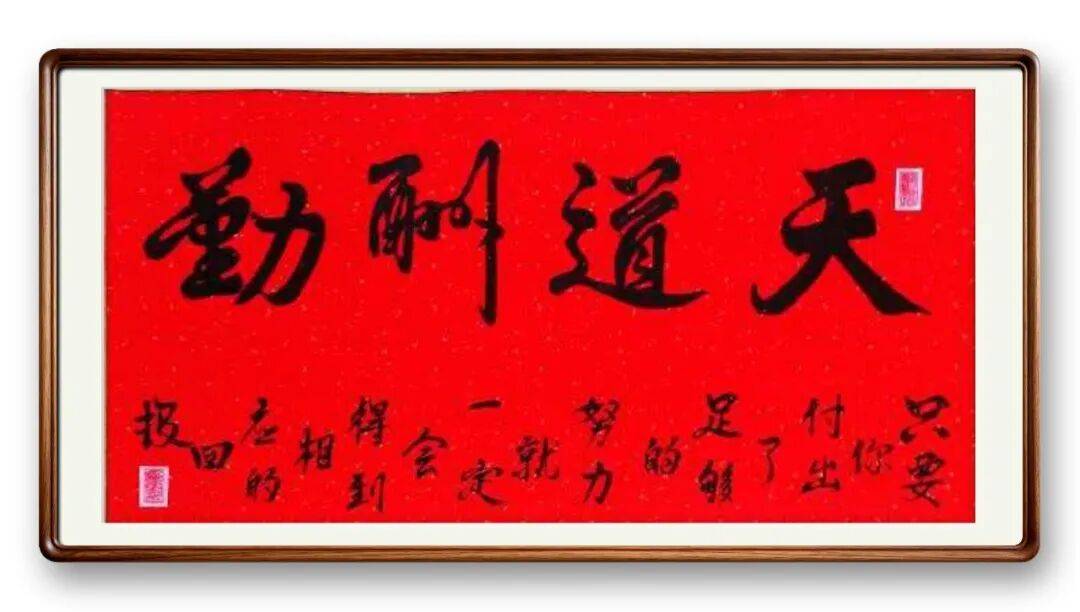 天道酬勤
只要你付出了足够的努力就一定会得到相应的回报